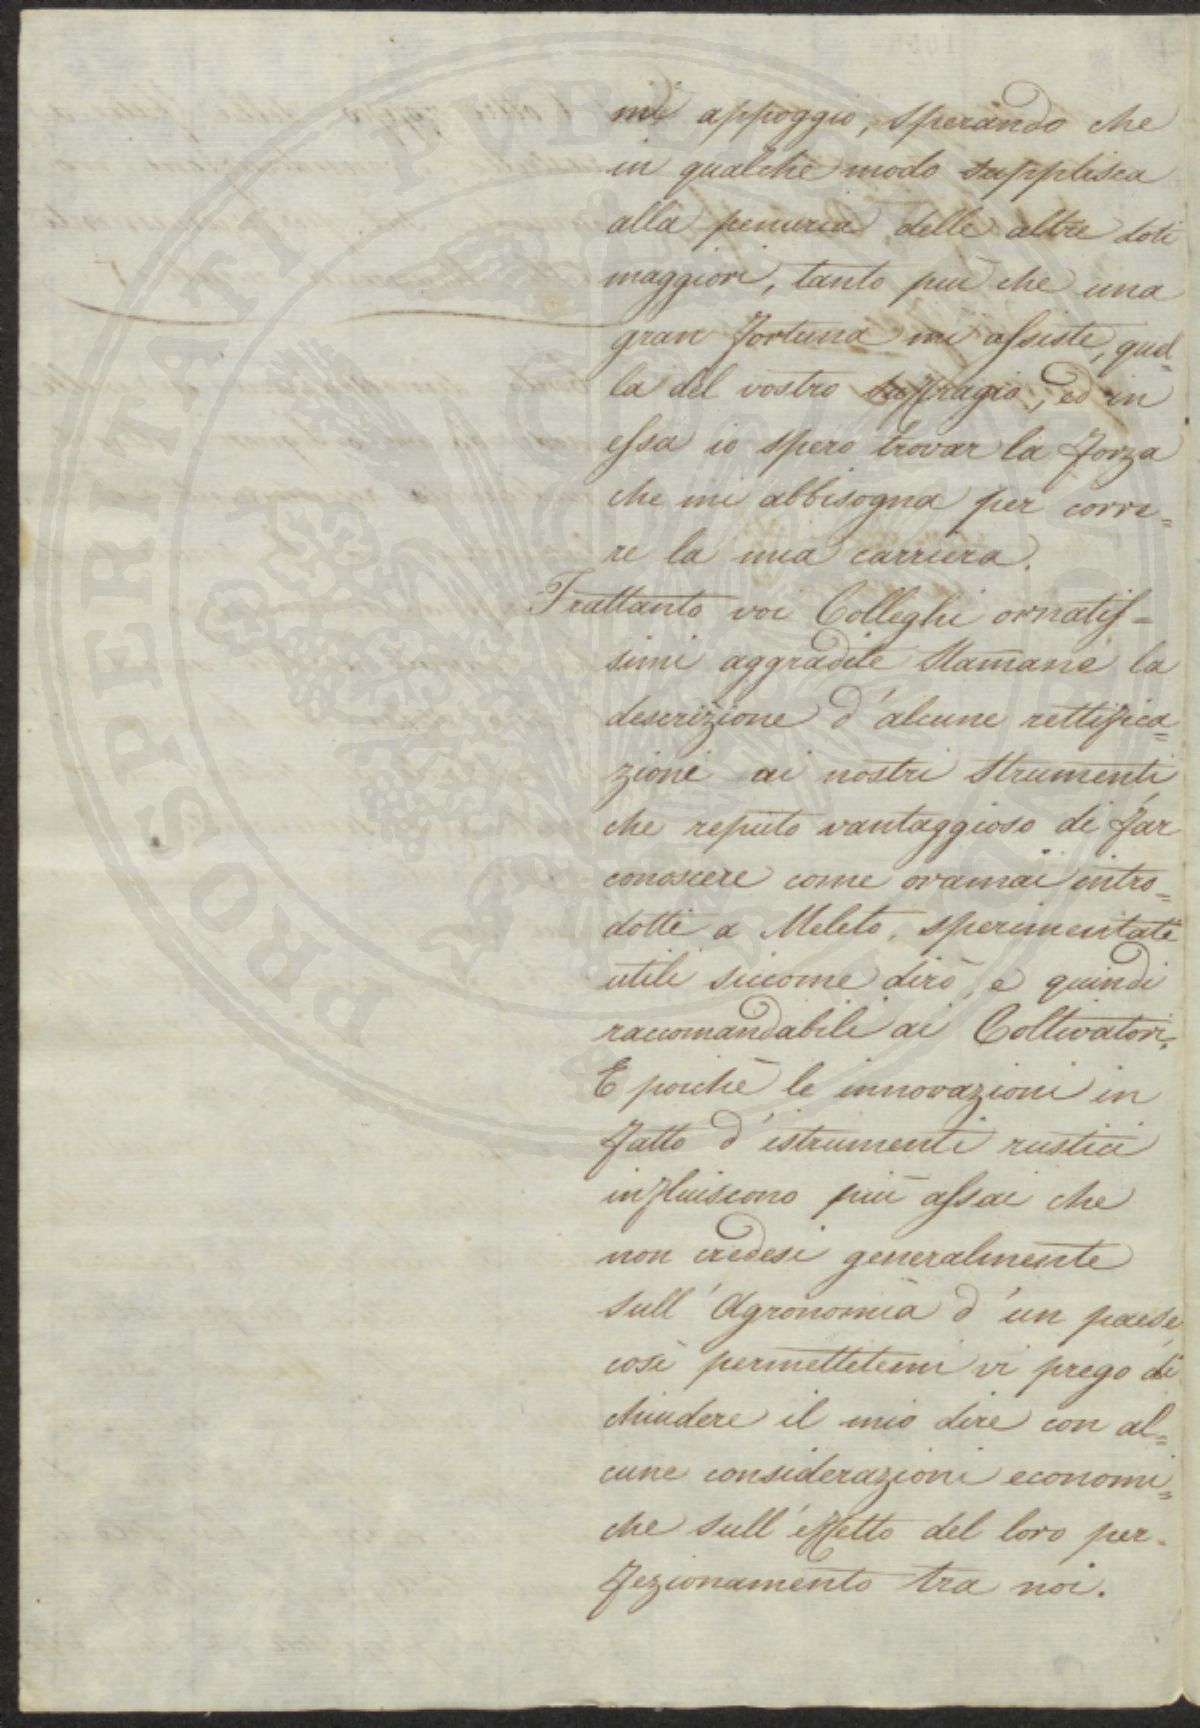 mi appoggio, sperando che
in qualche modo supplisca
alla penuria delle altre doti
maggiori, tanto più che una
gran fortuna mi assiste, quel-
la del vostro suffragio, ed in
essa io spero trovar la forza
che mi abbisogna per corre=
re la mia carriera.
Trattanto voi Colleghi ornatis=
simi aggradite stamane la
descrizione d'alcune rettifica=
zioni ai nostri strumenti,
che reputo vantaggioso di far
conoscere come oramai intro=
dotti a Meleto, sperimentati
utili siccome dirò, e quindi
raccomandabili ai Coltivatori.
E poichè le innovazioni in
fatto d'istrumenti rustici
influiscono più assai che
non credesi generalmente
sull'Agronomia d'un paese,
così permettetemi vi prego di
chiudere il mio dire con al=
cune considerazioni economi=
che sull'effetto del loro per-
fezionamento tra noi.
PROSPERITATI PUBLICAE